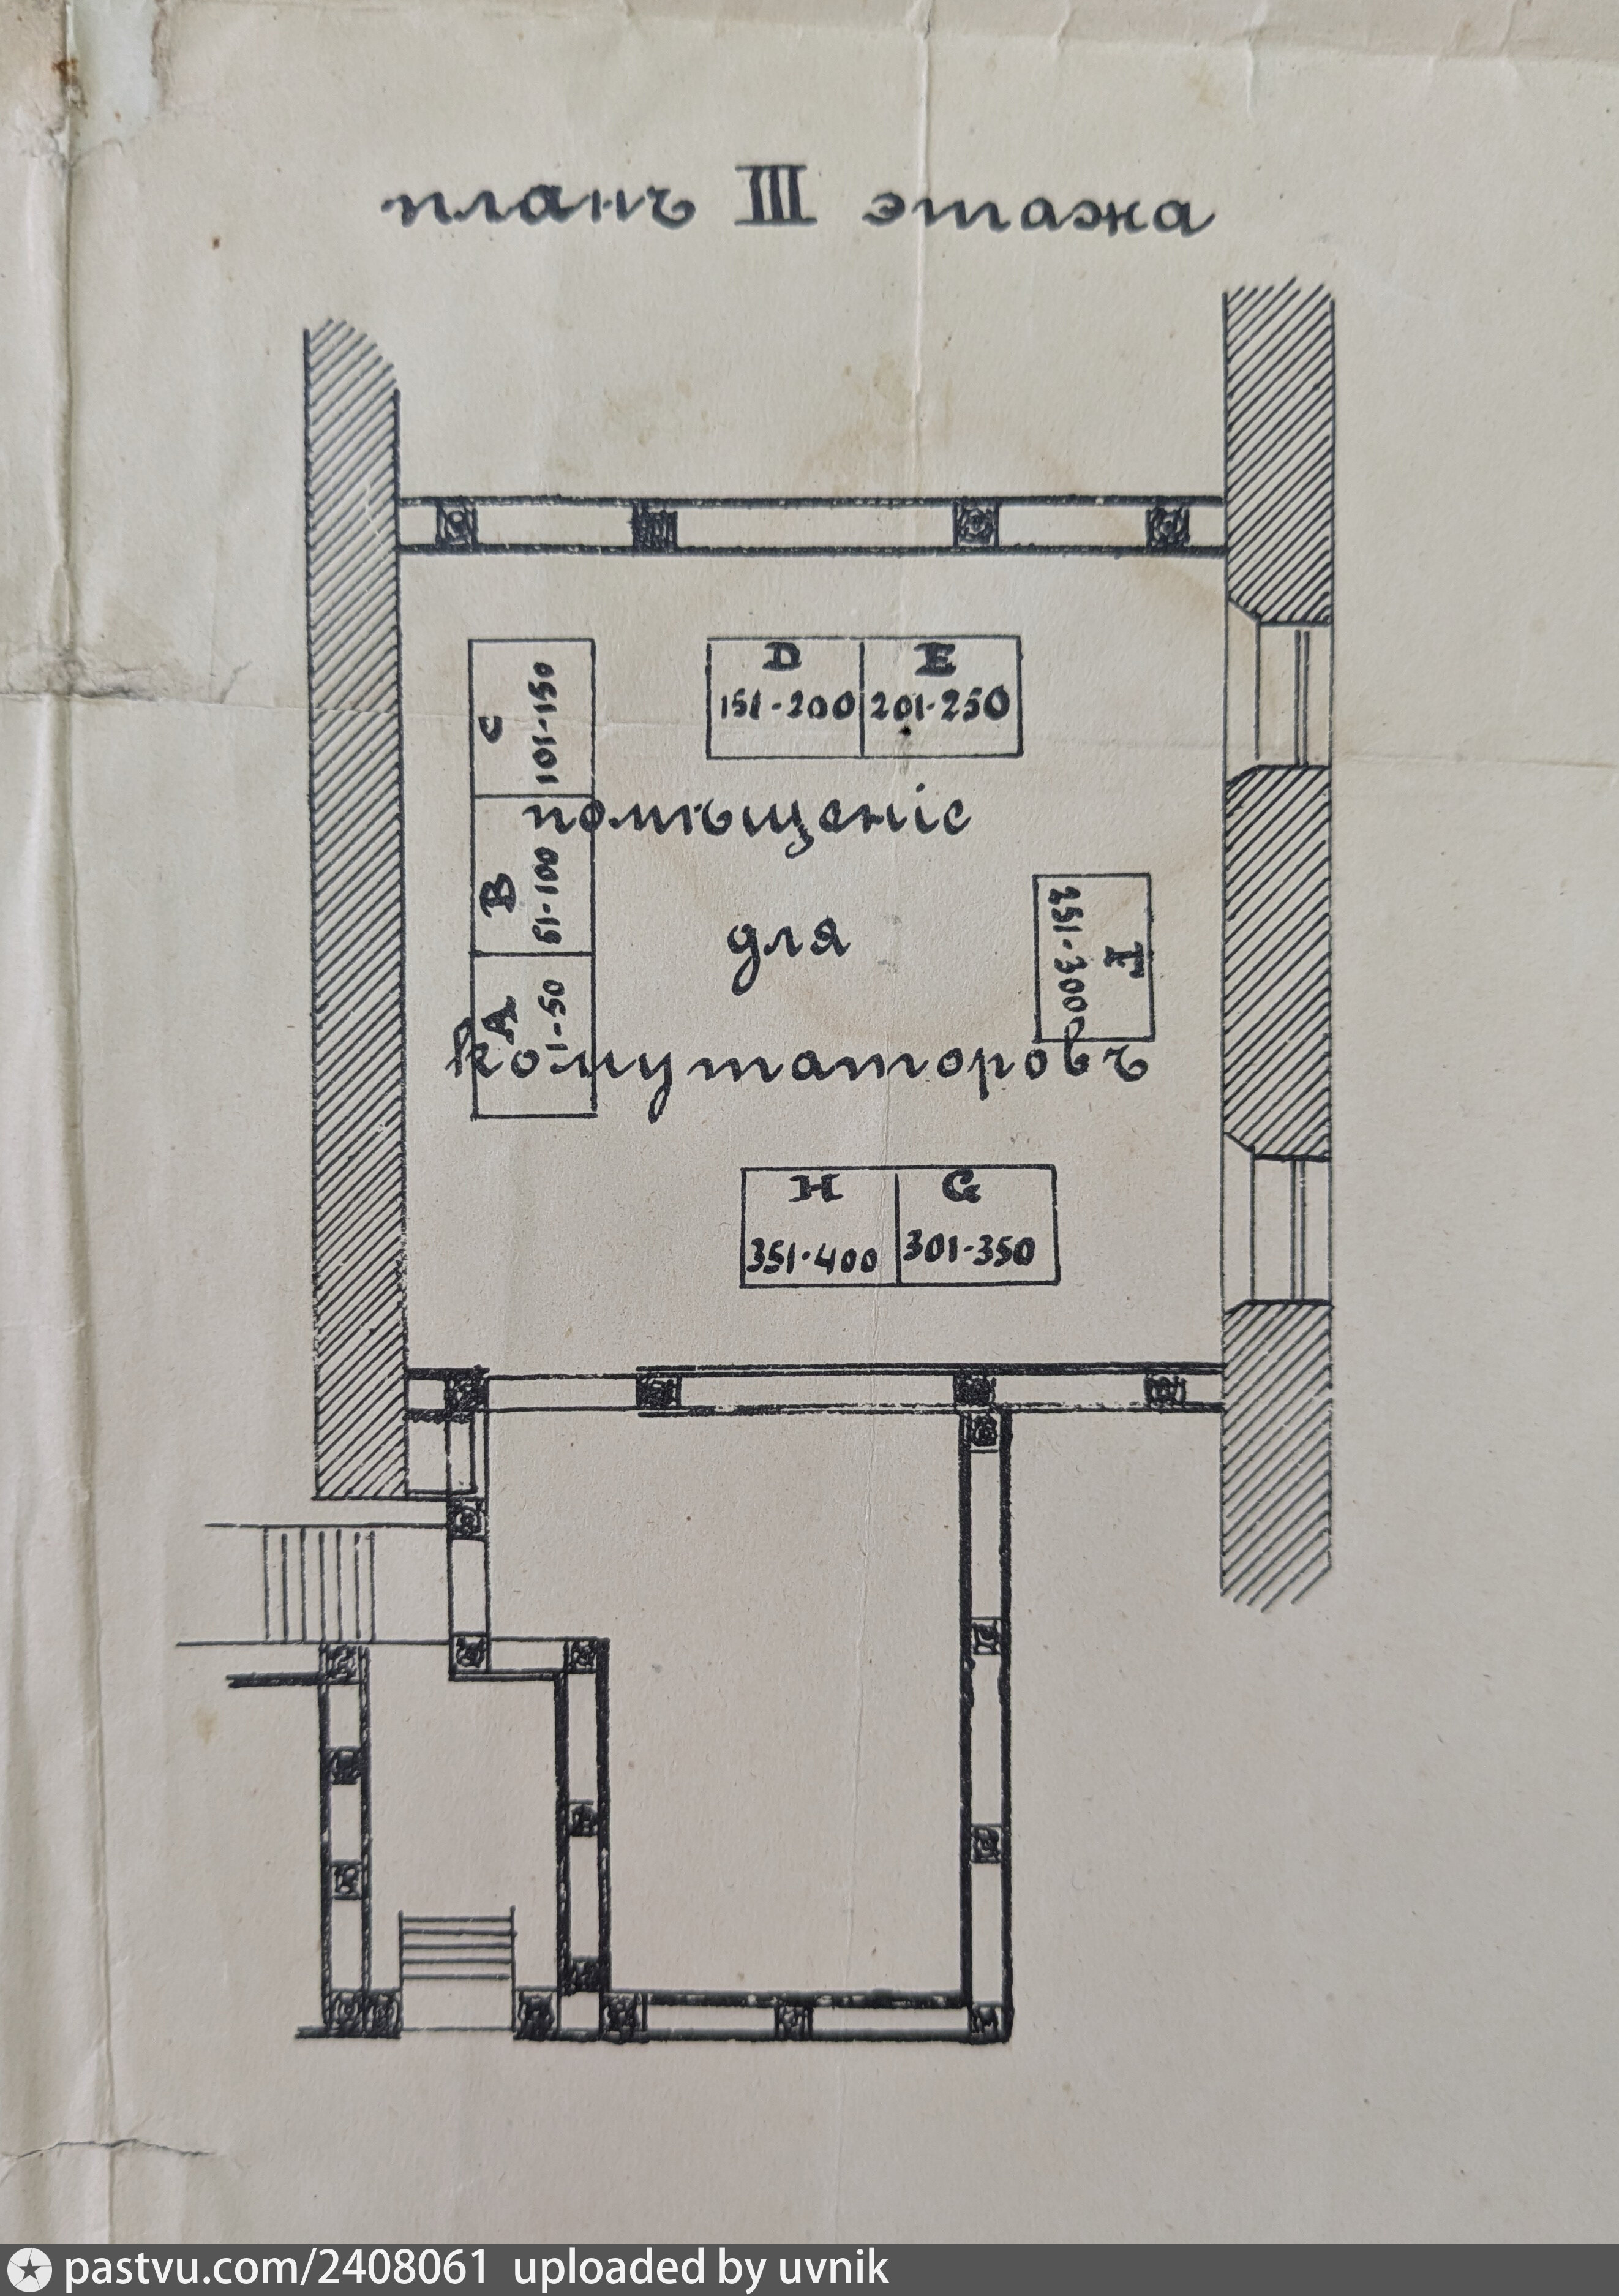 планъ III этажа
C
101-150
D
151-200
E
201-250
помѣщеніе
B
51-100
для
F
251-300
A
1-50
комутаторовъ
H
351-400
G
301-350
pastvu.com/2408061 uploaded by uvnik